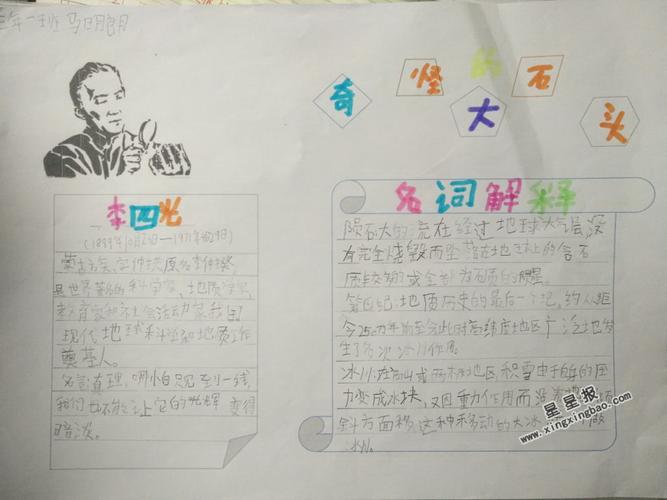 三年一班 马明月
奇怪的大石头
李四光
(1889年10月26日—1971年4月29日)
蒙古族,字仲揆,原名李仲揆
是世界著名的科学家、地质学家
教育家和社会活动家我国
现代地球科学和地质工作
奠基人。
名言:真理,哪怕只见到一线
我们也不能让它的光辉变得
暗淡。
名词解释
陨石大的流在经过地球大气层没
有完全烧毁而坠落在地球上的含石
质较多或全部为石质的陨星。
第四纪:地质历史的最后一个纪,约从距
今250万年前至今此时高纬度地区广泛地发
生了多次冰川作用。
冰川:在高山或两极地区,积雪由于自身的压
力变成冰块,又因重力作用而沿着
斜方面移,这种移动的大冰
冰川。
星星报
www.xingxingbao.com